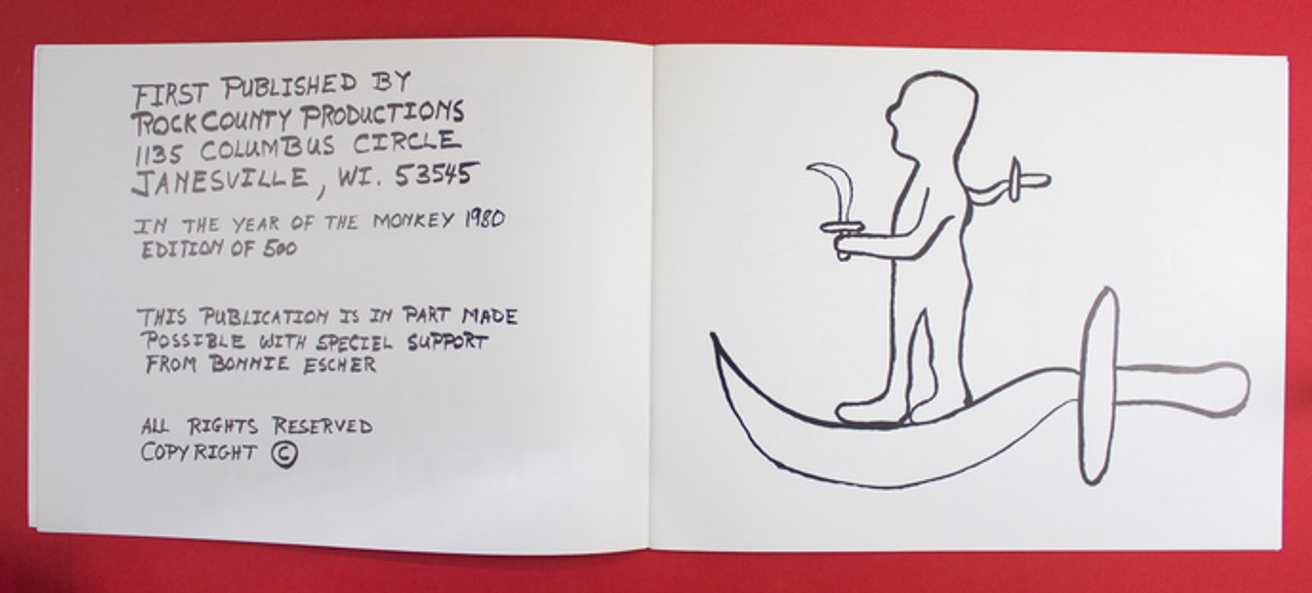 FIRST PUBLISHED BY
ROCK COUNTY PRODUCTIONS
1135 COLUMBUS CIRCLE
JANESVILLE, WI. 53545
IN THE YEAR OF THE MONKEY 1980
EDITION OF 500
THIS PUBLICATION IS IN PART MADE
POSSIBLE WITH SPECIEL SUPPORT
FROM BONNIE ESCHER
ALL RIGHTS RESERVED
COPYRIGHT ©